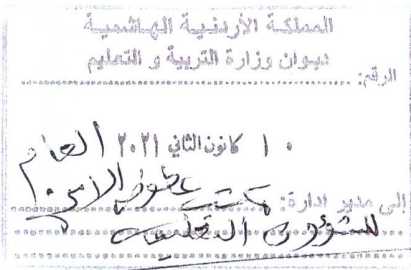 المملكة الأردنية الهاشمية
ديوان وزارة التربية و التعليم
الرقم:
١٠ كانون الثاني ٢٠٢١
إلى مدير ادارة: مكتب عطوفة الأمين العام
للشؤون التعليمية